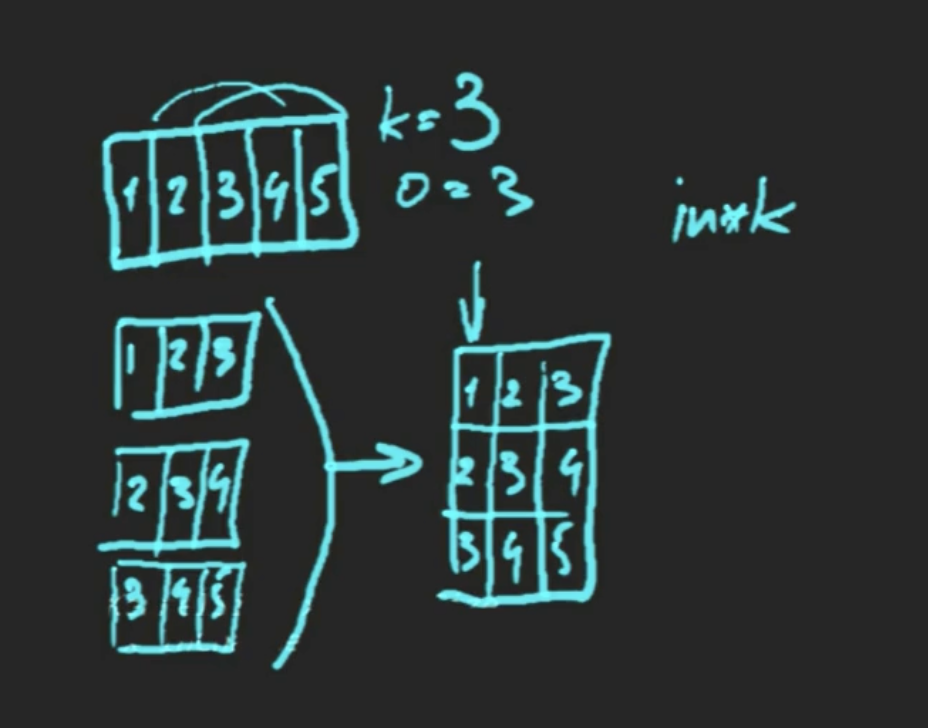 1 2 3 4 5
k=3
o=3
in*k
1 2 3
2 3 4
3 4 5
1 2 3
2 3 4
3 4 5